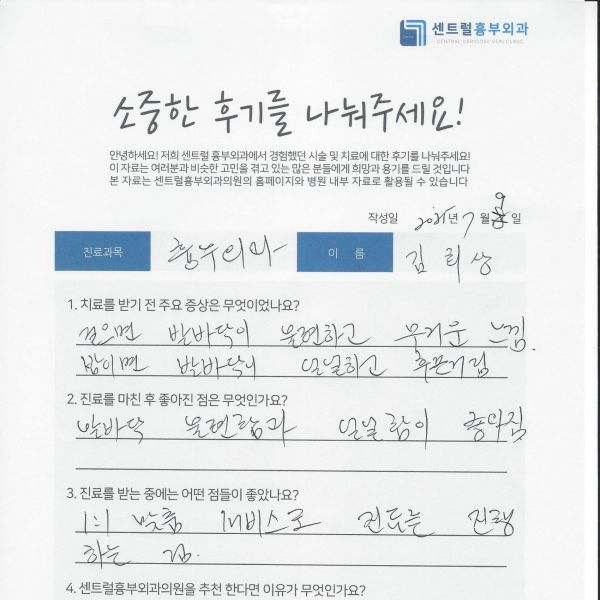 센트럴흉부외과
CENTRAL VARICOSE VEIN CLINIC
소중한 후기를 나눠주세요!
안녕하세요! 저희 센트럴 흉부외과에서 경험했던 시술 및 치료에 대한 후기를 나눠주세요!
이 자료는 여러분과 비슷한 고민을 겪고 있는 많은 분들에게 희망과 용기를 드릴 것입니다
본 자료는 센트럴흉부외과의원의 홈페이지와 병원 내부 자료로 활용될 수 있습니다
작성일 2025년 7월 9일
진료과목 흉부외과 이 름 김희상
1. 치료를 받기 전 주요 증상은 무엇이었나요?
걸으면 발바닥이 불편하고 무거운 느낌.
밤이면 발바닥이 얼얼하고 화끈거림
2. 진료를 마친 후 좋아진 점은 무엇인가요?
발바닥 불편함과 얼얼함이 좋아짐
3. 진료를 받는 중에는 어떤 점들이 좋았나요?
1:1 맞춤 서비스로 진료를 진행
하는 점.
4. 센트럴흉부외과의원을 추천 한다면 이유가 무엇인가요?